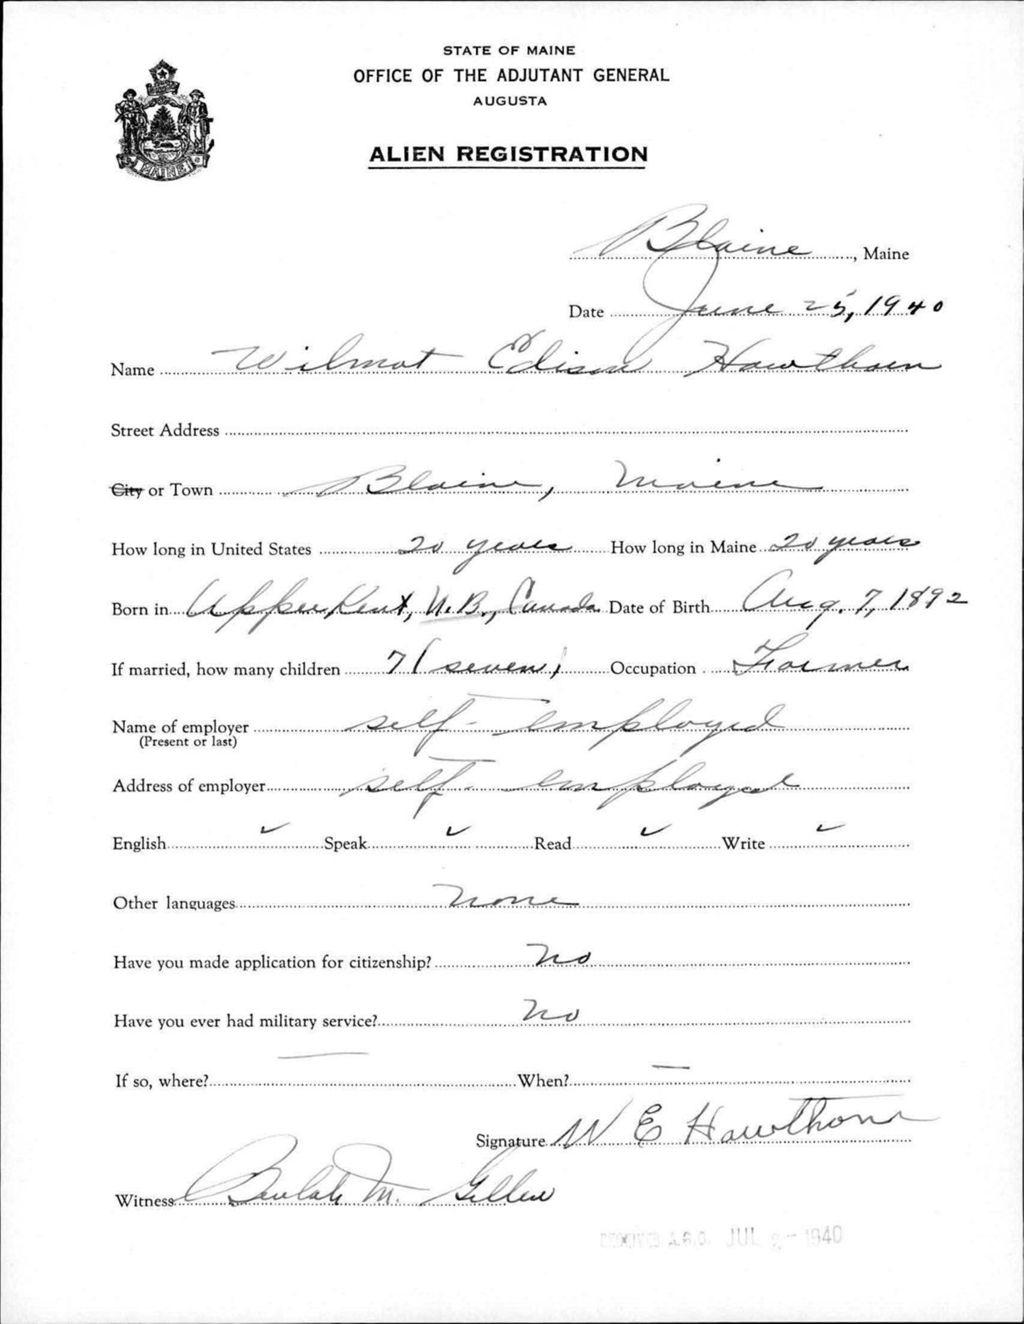 STATE OF MAINE
OFFICE OF THE ADJUTANT GENERAL
AUGUSTA
ALIEN REGISTRATION
MAINE
Blaine, Maine
Date June 25, 1940
Name Wilmot Edison Hawthorn
Street Address
City or Town Blaine, Maine
How long in United States 20 years How long in Maine 20 years
Born in Upper Kent, N.B., Canada Date of Birth Aug. 7, 1892
If married, how many children 7 (seven) Occupation Farmer
Name of employer self-employed
(Present or last)
Address of employer self-employed
English ✓ Speak ✓ Read ✓ Write ✓
Other languages none
Have you made application for citizenship? No
Have you ever had military service? No
If so, where? — When? —
Signature W E Hawthorn
Witness Beulah M. Gillen
A.G.O. JUL - 1940